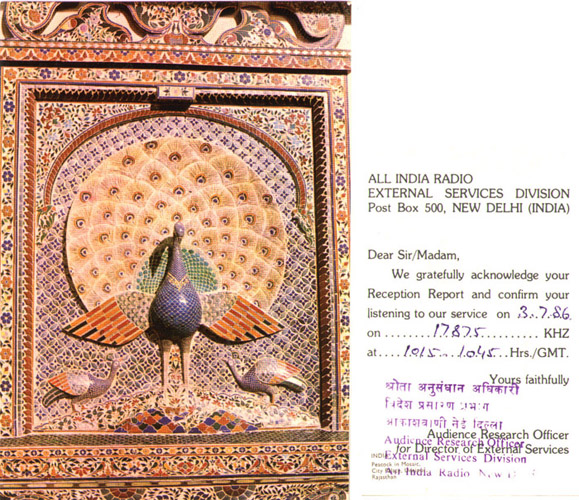 ALL INDIA RADIO
EXTERNAL SERVICES DIVISION
Post Box 500, NEW DELHI (INDIA)
Dear Sir/Madam,
We gratefully acknowledge your
Reception Report and confirm your
listening to our service on 3.7.86
on ........17875.......... KHZ
at....1015...1045..Hrs./GMT.
Yours faithfully
श्रोता अनुसंधान अधिकारी
विदेश प्रसारण प्रभाग
आकाशवाणी नई दिल्ली
Audience Research Officer
for Director of External Services
Audience Research Officer
External Services Division
All India Radio New
INDIA
Peacock in Mosaic,
City
Rajasthan